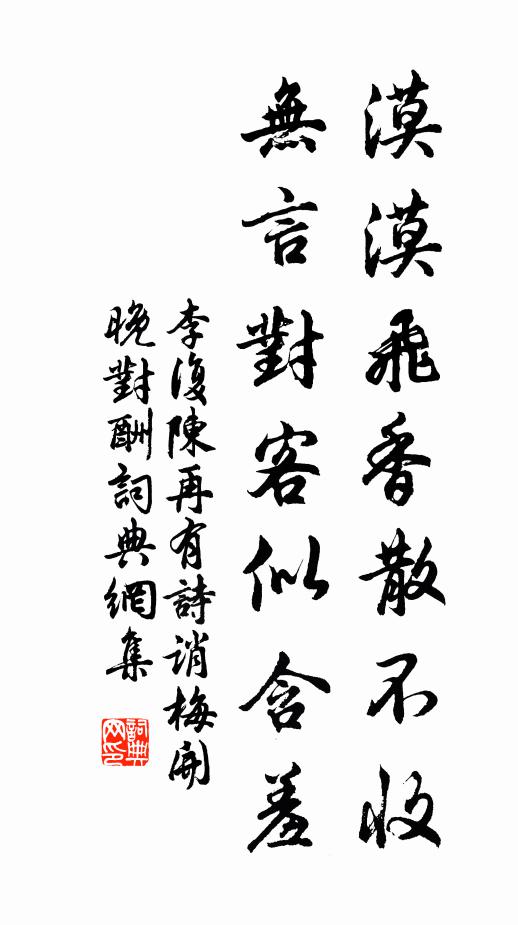 漠漠飛香散不收
無言對客似含羞
李復陳再有詩誚梅開
晚對酬詞典網集
詞典网印